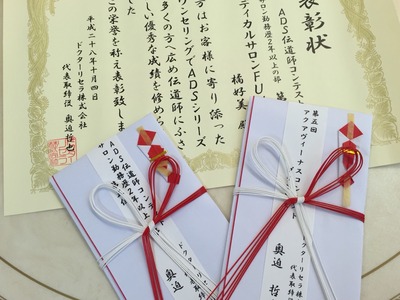 表彰状
ADS伝道師コンテスト
サロン勤務歴2年以上の部
ティカルサロンFU
橘好美
方はお客様に寄り添った
ウンセリングでADSシリーズ
多くの方へ広め伝道師にふさ
しい優秀な成績を修め
この栄誉を称え表彰致しま
平成二十八年十月四日
ドクターリセラ株式会社
代表取締役 奥迫哲也
ADS伝道師コン
サロン勤務歴2年以上
ドクターリセラ
代表取
奥迫
第五回
アクアヴィーナスコンテ
ドクターリセラ株
代表取締
奥迫 哲